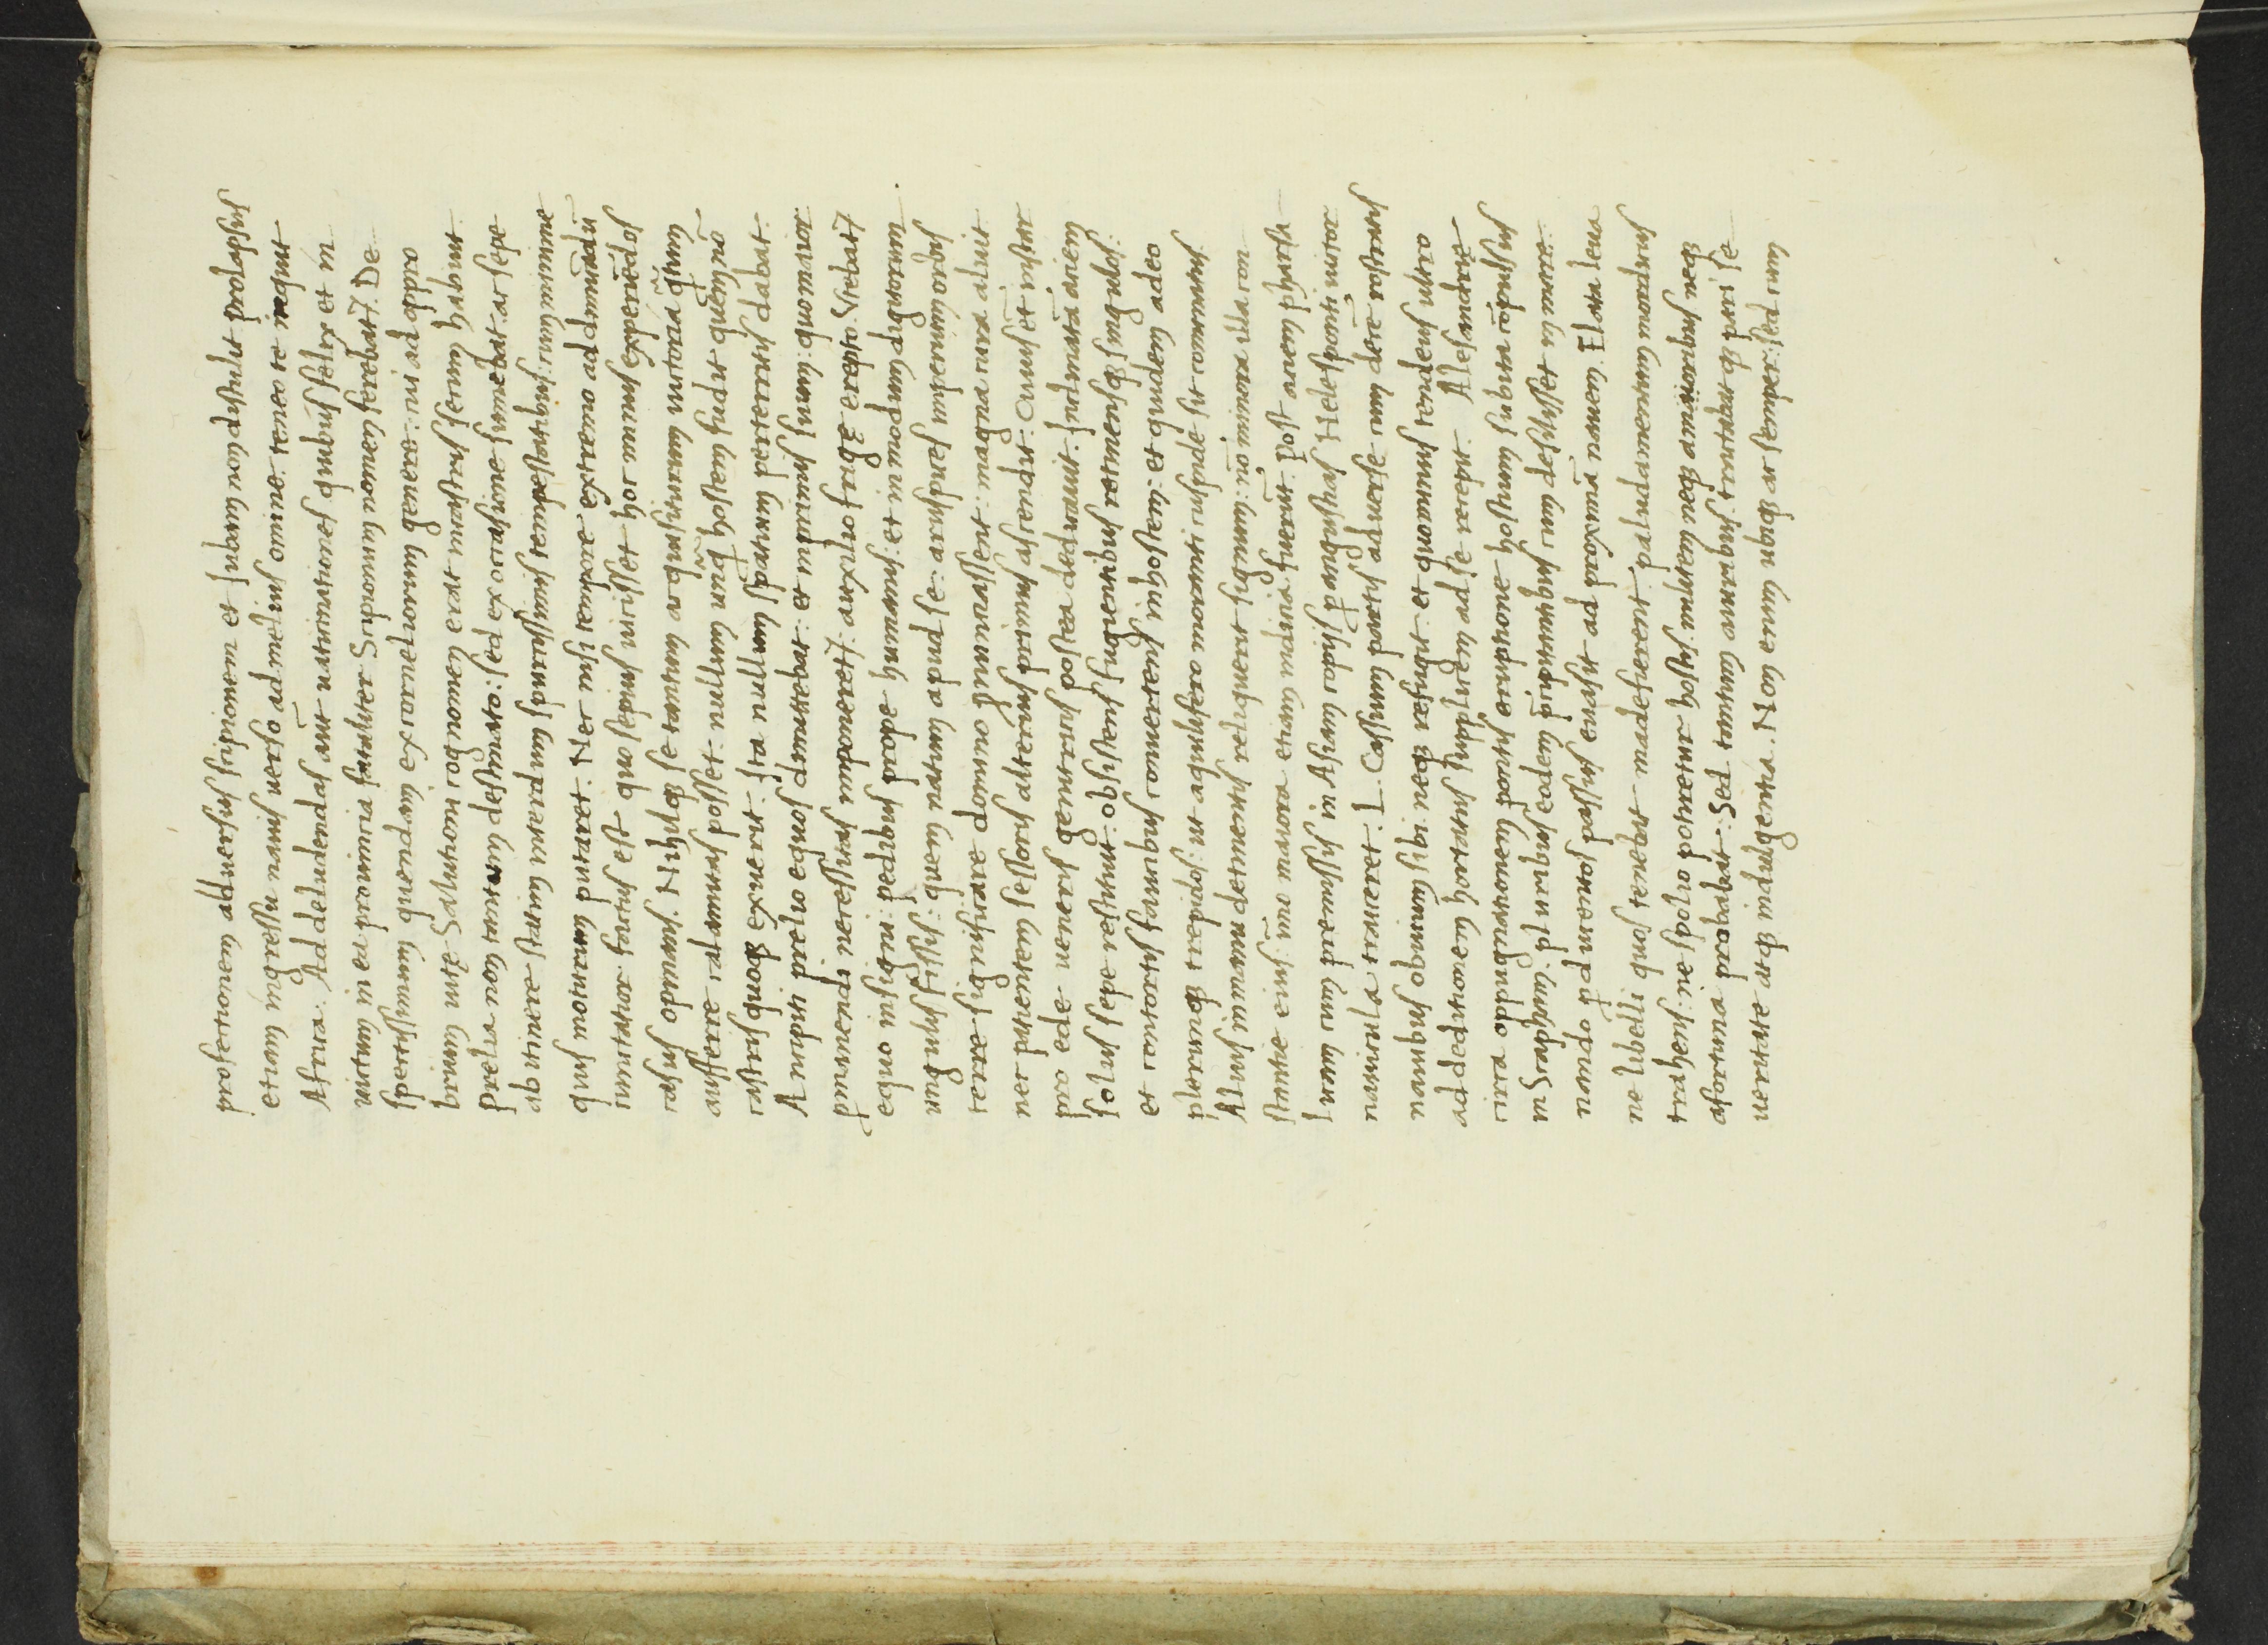 profectionem aduersus scipionem et Iubam non distulit prolapsus
etiam ingressu nauis uerso ad melius omine. teneo te inquit
Africa. Ad deludendas aūt uaticinationes quibus felix et in
uictum in ea prouincia fataliter Scipionum nomen ferebat᷑. De
spectissimum quendam ex corneliorum genere: cui ad oppro
brium uite Salutioni cognomen erat in castris secum habuit.
Prelia non tantum destinato: sed ex occasione sumebat. ac sepe
ab itinere statim interdum spurcissimis tempestatibus: cum minime
quis moturum putaret. Nec nisi tempore extremo ad dimicādū
cunctatior factus est quo sepius uicisset hoc minus experiēdos
casus opinans. Nihilqꝫ se tantum acquisiturum uictoria q̄ntum
aufferre calamitas posset. nullum unq̄ hostem fudit quem nō
castris quoqꝫ exuerit. Ita nullum spatium perterritis dabat.
Ancipiti prelio equos dimittebat: et in primis suum: quo maior
ꝑmanendi necessitas imponeret᷑. auxilio frage erepto. Vtebat᷑
equo insigni pedibus prope humanis: et in modum digitorum
ungulis fissis: quem natum apud se: aruspices imperium orbis
terre significare domino ꝓnunciassent: magna cura aluit
nec patientem sessoris alterius primus ascendit. Cuius et̄ instar
pro ede ueneris genitricis postea dedicauit. Inclinatā aciem
solus sepe restituit. obsistens fugientibus retinensqꝫ singulos:
et contortis faucibus conuertens in hostem: et quidem adeo
plerunqꝫ trepidos: ut aquilifero moranti cuspide sit comminatus.
Alius in manu detinentis reliquerit signum: nō minora illa con
stantie eius: imo maiora etiam indicia fuerūt. post aciem pharsa
licam cum premissis in Asiam copiis ꝑ angustias Helesponti uictor
nauicula traiceret. L. Cassium partis aduerse cum decē rostratis
nauibus obuium sibi. neqꝫ refugit. et quominus tendens ultro
ad deditionem hortatus supplicem ad se recepit. Alesandrie
circa oppugnationem pontis eruptione hostium subita cōpulsus
in Scapham. pluribus eadem pᷓcipitantibus cum desilisset in mare.
nando ꝑ ducentos passus euasit ad proximā nauem. Elata leua
ne libelli quos tenebat madefierent. paludamentum mordicus
trahens: ne spolio potiretur hostis. militem neqꝫ a moribus neqꝫ
a fortuna probabat: Sed tantum a uiribus. tractabatqꝫ pari se
ueritate atqꝫ indulgentia. Non enim ubiqꝫ ac semper: sed cum